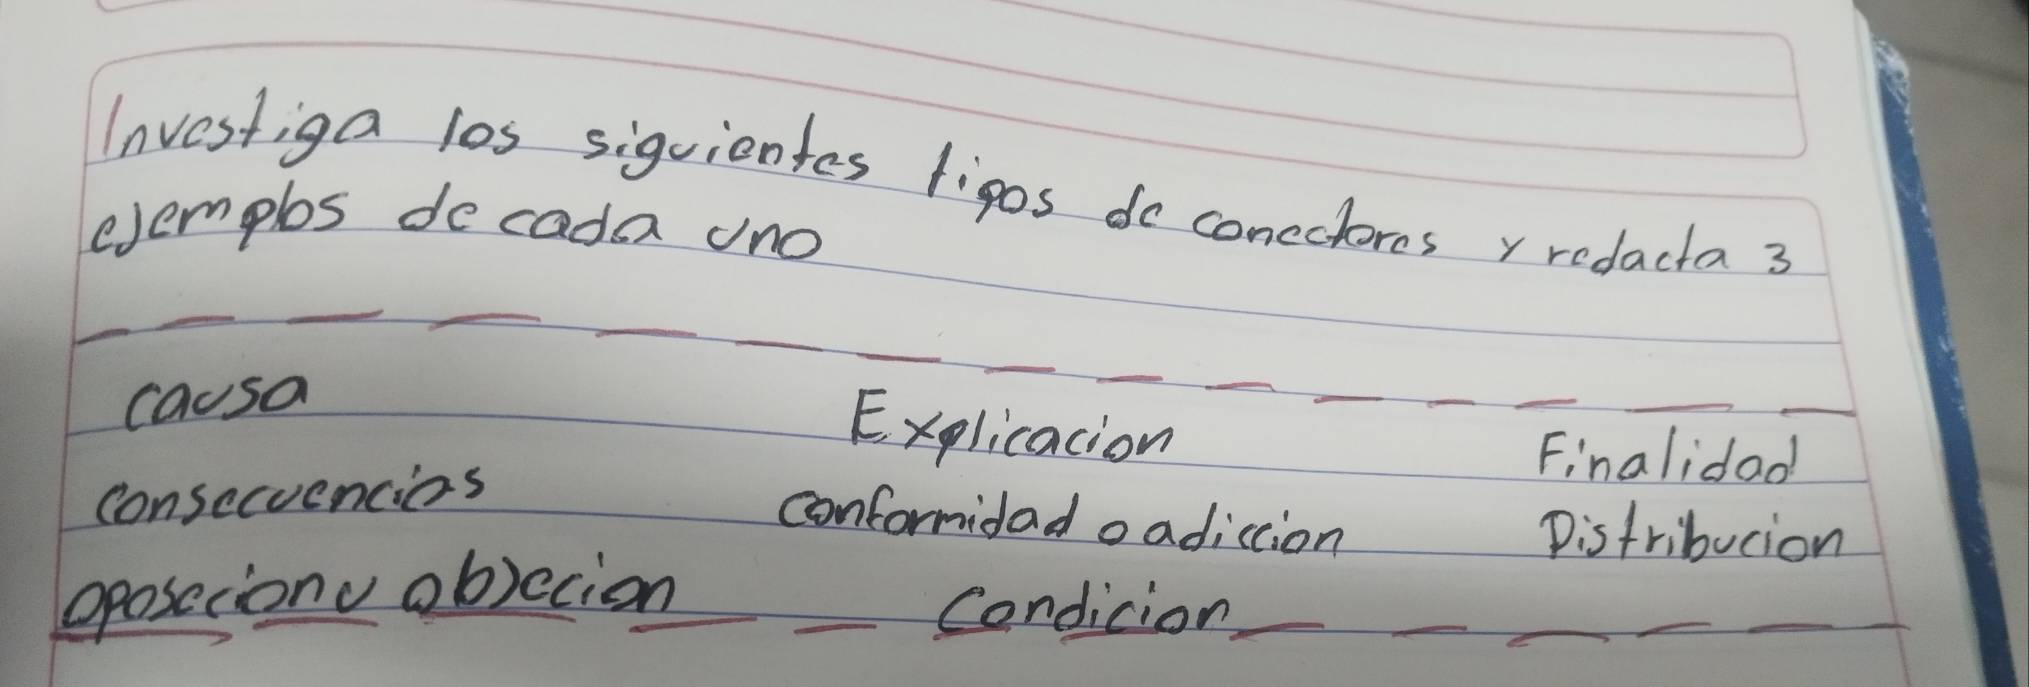 Investiga los siguientes tipos de conectores y redacta 3
ejemplos de cada uno
causa Explicacion Finalidad
consecuencias conformidad o adiccion Distribucion
oposecion u objecion condicion